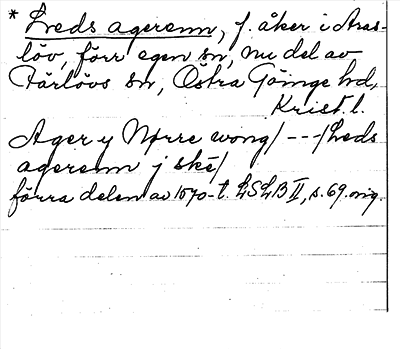 * Leds agerenn, f. åker i Aras-
löv, förr egen sn, nu del av
Färlövs sn, Östra Göinge hd,
Krist. l.
Ager y Nørre wong/ ---/Leds
agerenn j skě/
förra delen av 1570-t. LSLB II, s. 69. orig.